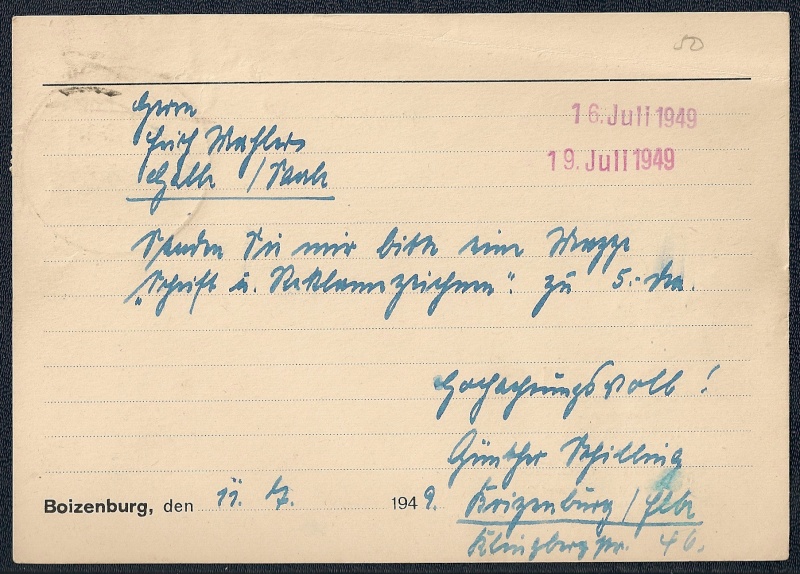 50
Herrn
Erich Mahler
Halle / Saale
16. Juli 1949
19. Juli 1949
Senden Sie mir bitte eine Mappe
„Schrift u. Reklamezeichnen". zu 5.- DM.
Hochachtungsvoll!
Günther Schilling
Boizenburg, den 11. 7. 1949.
Boizenburg / Elbe
Klingbergstr. 46.